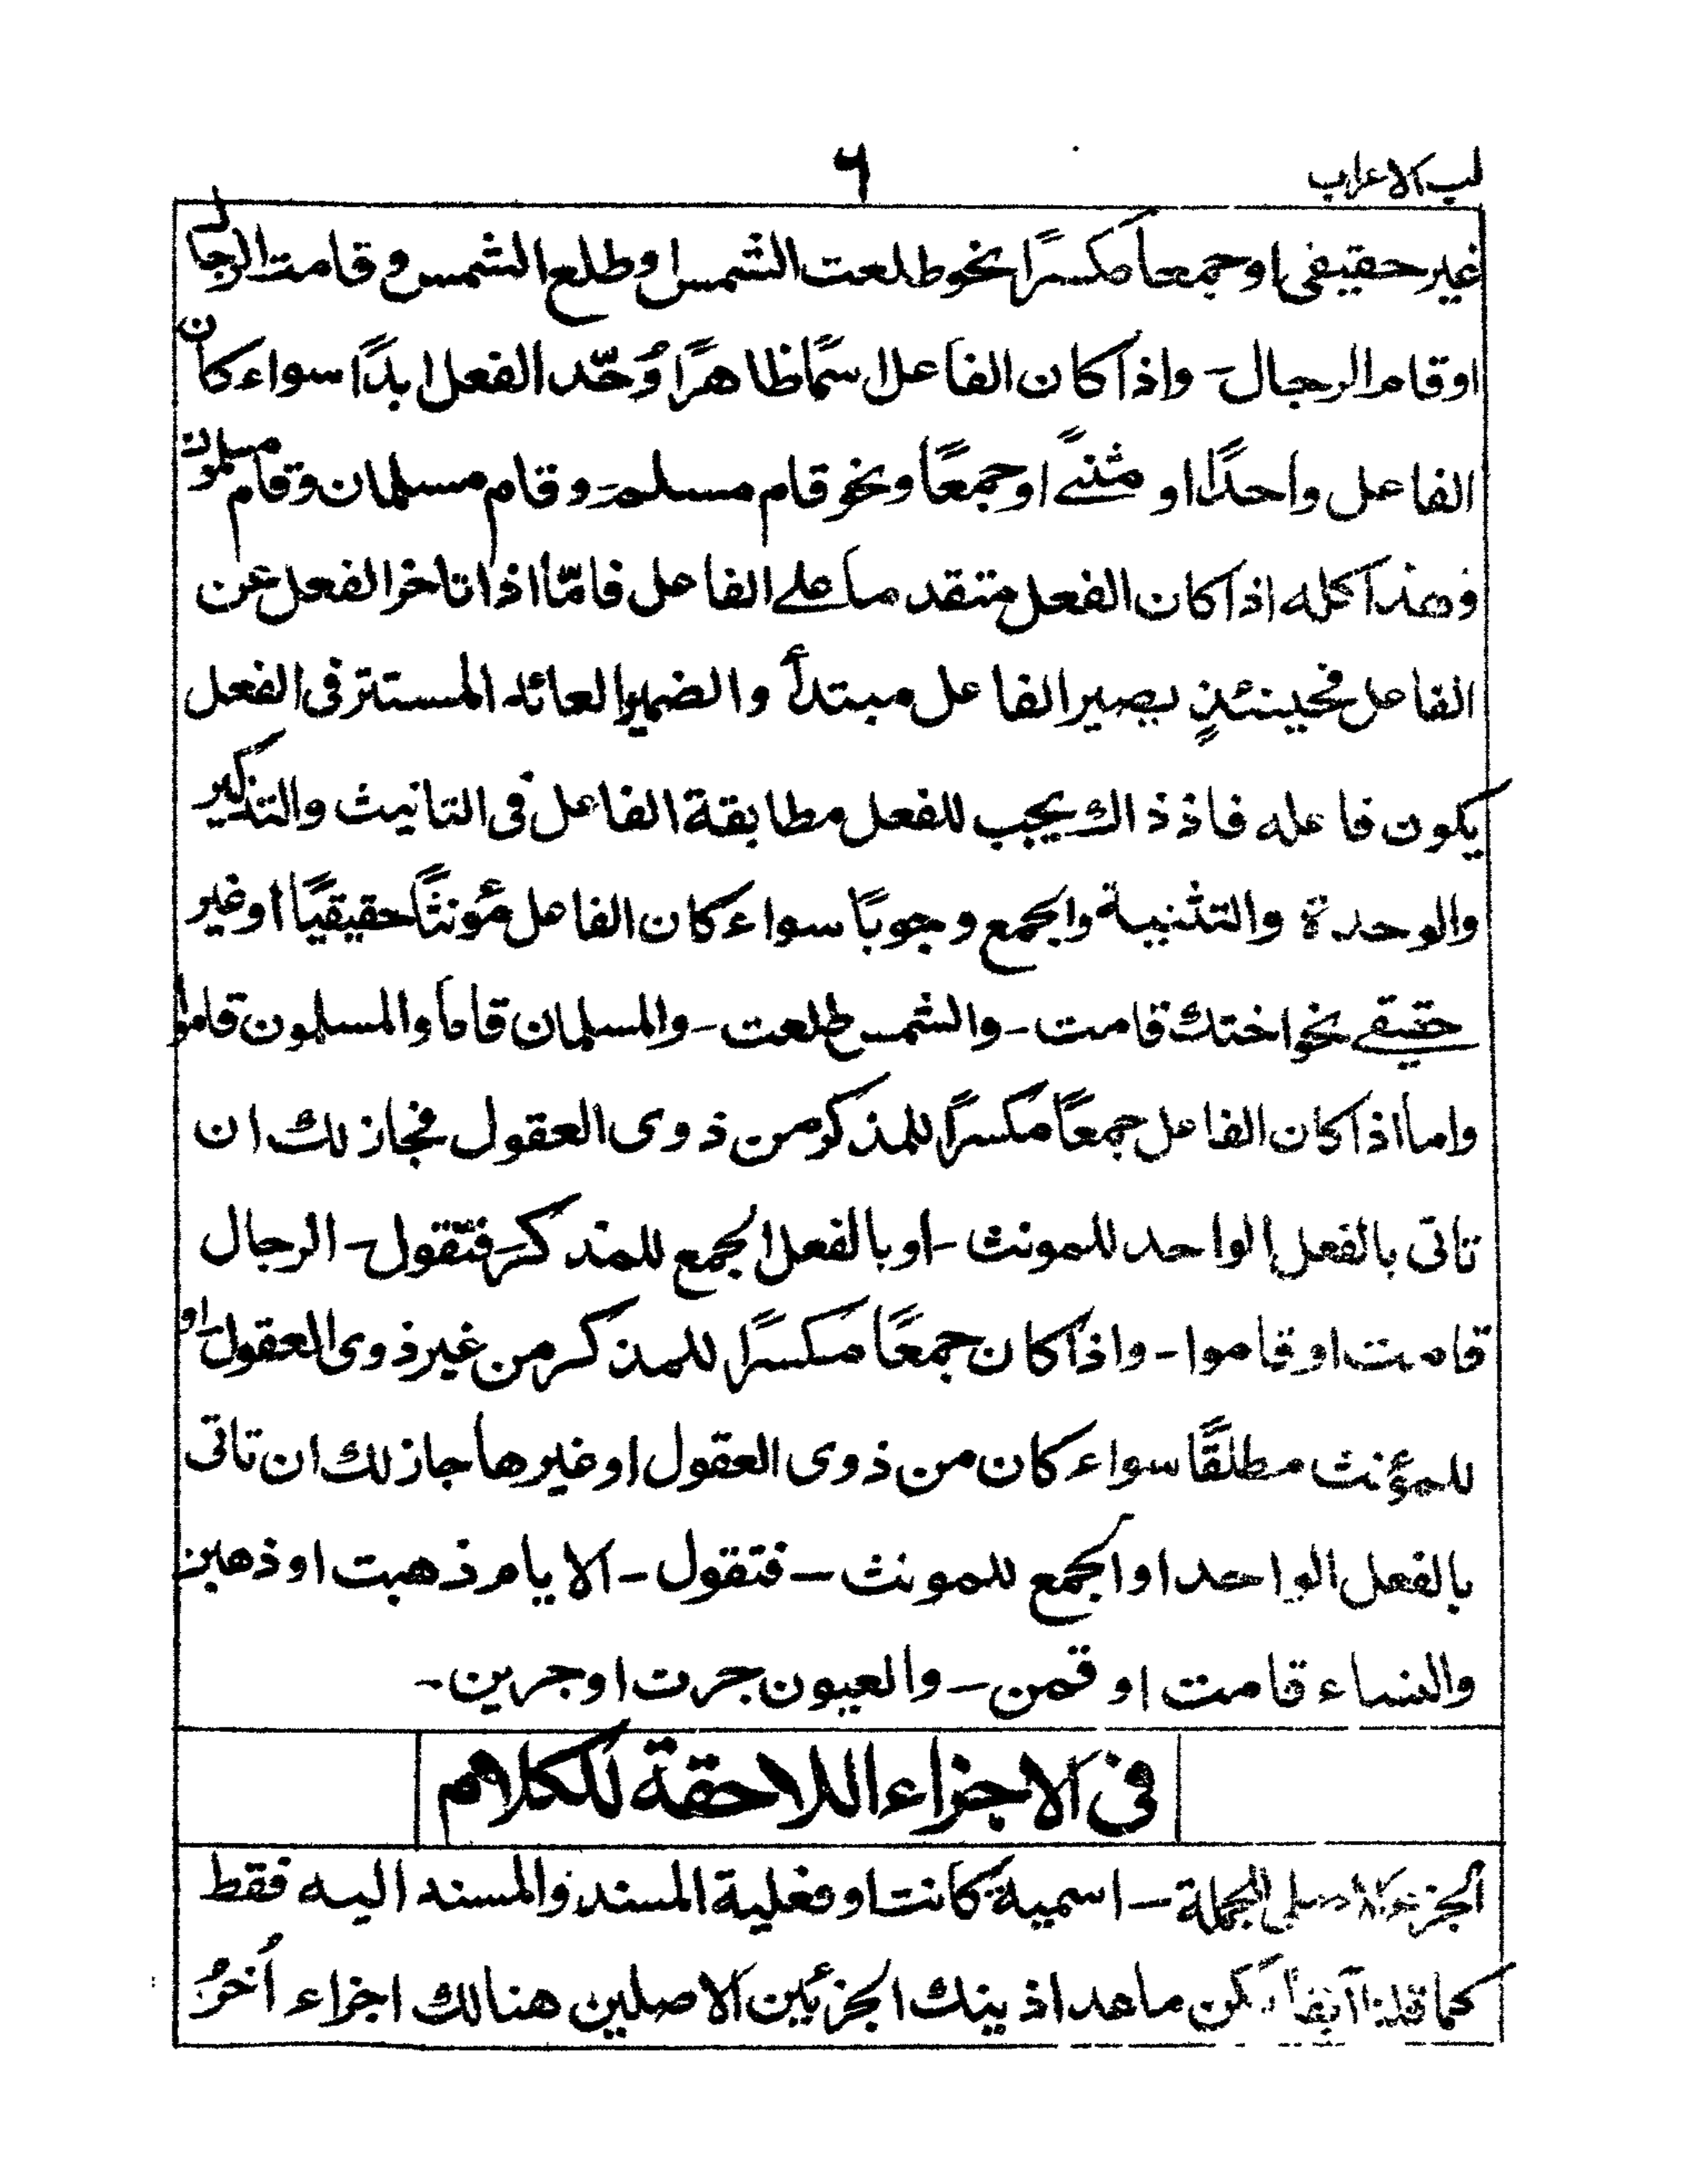 لب الاعراب
٦
غير حقيقى او جمعاً مكسرًا نحو طلعت الشمس او طلع الشمس و قامت الرجال
او قام الرجال - واذا كان الفاعل اسمًا ظاهرًا وُحّد الفعل ابدًا سواء كان
الفاعل واحدًا او مثنىً او جمعًا ونحو قام مسلم - و قام مسلمان وقام مسلمون
وهذا كله اذا كان الفعل متقدما على الفاعل فامّا اذا تاخر الفعل عن
الفاعل فحينئذٍ يصير الفاعل مبتدأً والضمير العائد المستتر فى الفعل
يكون فاعله فاذ ذاك يجب للفعل مطابقة الفاعل فى التانيث والتذكير
والوحدة والتثنية والجمع وجوبًا سواء كان الفاعل مؤنثًا حقيقيًا او غير
حقيقى نحو اختك قامت - والشمس طلعت - والمسلمان قاما والمسلمون قاموا
واما اذا كان الفاعل جمعًا مكسرًا للمذكر من ذوى العقول فجاز لك ان
تاتى بالفعل الواحد للمونث - او بالفعل الجمع للمذكر - فتقول - الرجال
قامت او قاموا - واذا كان جمعًا مكسرًا للمذكر من غير ذوى العقول - او
للمؤنث مطلقًا سواء كان من ذوى العقول او غيرها جاز لك ان تاتى
بالفعل الواحد او الجمع للمونث - فتقول - الايام ذهبت او ذهبن
والنساء قامت او قمن - والعيون جرت او جرين -
فى الاجزاء اللاحقة للكلام
الجزء الاصلى للجملة - اسمية كانت او فعلية المسند والمسند اليه فقط
كما قلنا آنفا لكن ما هد اذ ينك الجزئين الاصلين هنالك اجزاء اُخرُ